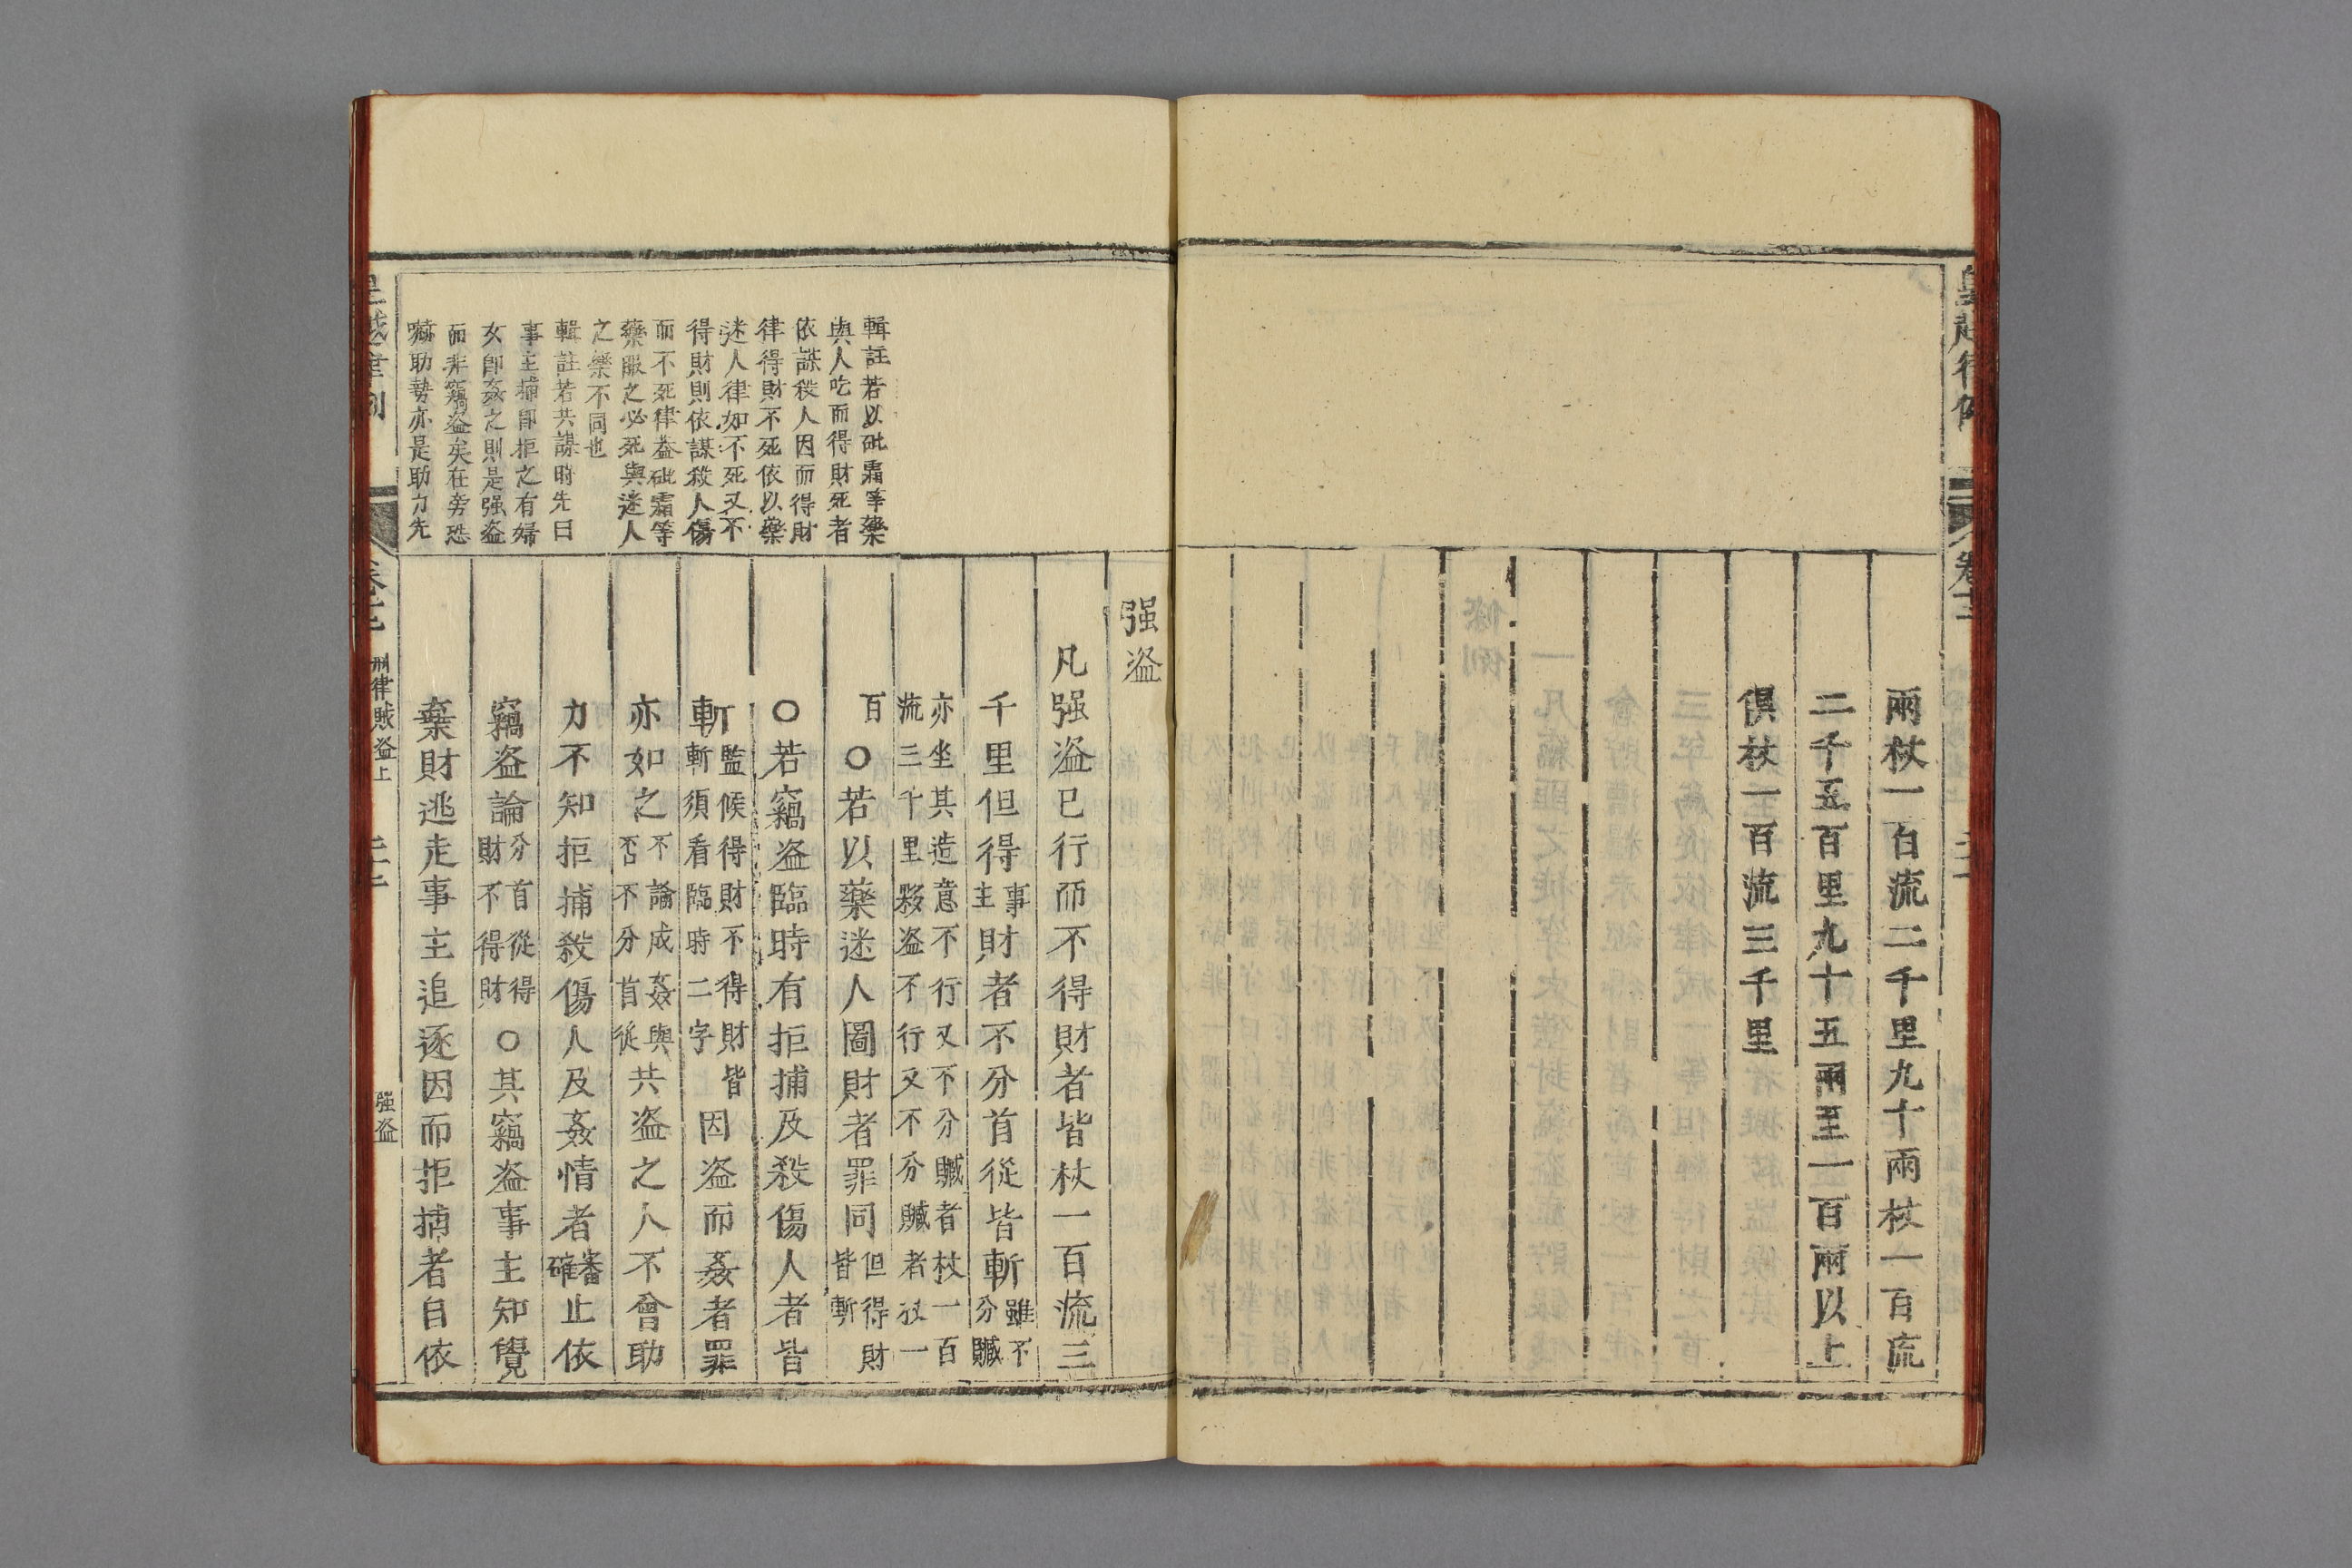 兩杖一百流二千里九十兩杖一百流
二千五百里九十五兩至一百兩以上
俱杖一百流三千里
輯註若以砒霜等藥
與人吃而得財死者
依謀殺人因而得財
律得財不死依以藥
迷人律如不死又不
得財則依謀殺人傷
而不死律葢砒霜等
藥服之必死與迷人
之藥不同也
輯註若共謀時先曰
事主捕卽拒之有婦
女卽姦之則是强盗
而非竊盗矣在旁恐
嚇助勢亦是助力先
强盗
凡强盗已行而不得財者皆杖一百流三
千里但得事主財者不分首從皆斬雖不分贓
亦坐其造意不行又不分贓者杖一百
流三千里夥盗不行又不分贓者杖一
百〇若以藥迷人圖財者罪同但得財皆斬
〇若竊盗臨時有拒捕及殺傷人者皆
斬監候得財不得財皆斬須看臨時二字因盗而姦者罪
亦如之不論成姦與否不分首從共盗之人不曾助
力不知拒捕殺傷人及姦情者審確止依
竊盗論分首從得財不得財〇其竊盗事主知覺
棄財逃走事主追逐因而拒捕者自依
皇越律例
刑律賊盗上
强盗